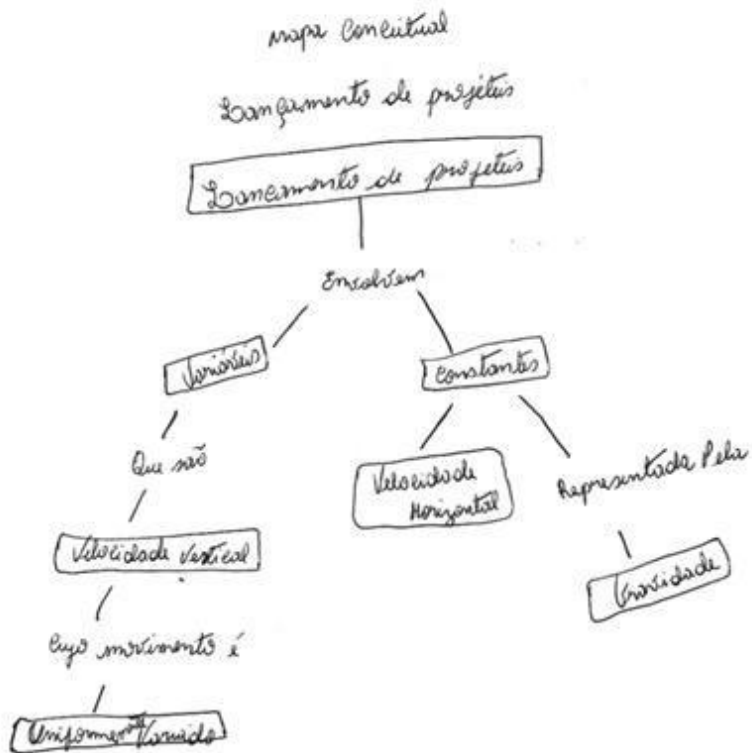 Mapa Conceitual
Lançamento de projéteis
Lançamento de projeteis
Envolvem
Variáveis
Constantes
Que são
Velocidade
Horizontal
Representada Pela
Velocidade Vertical
Gravidade
Cujo movimento é
Uniformemente Variado